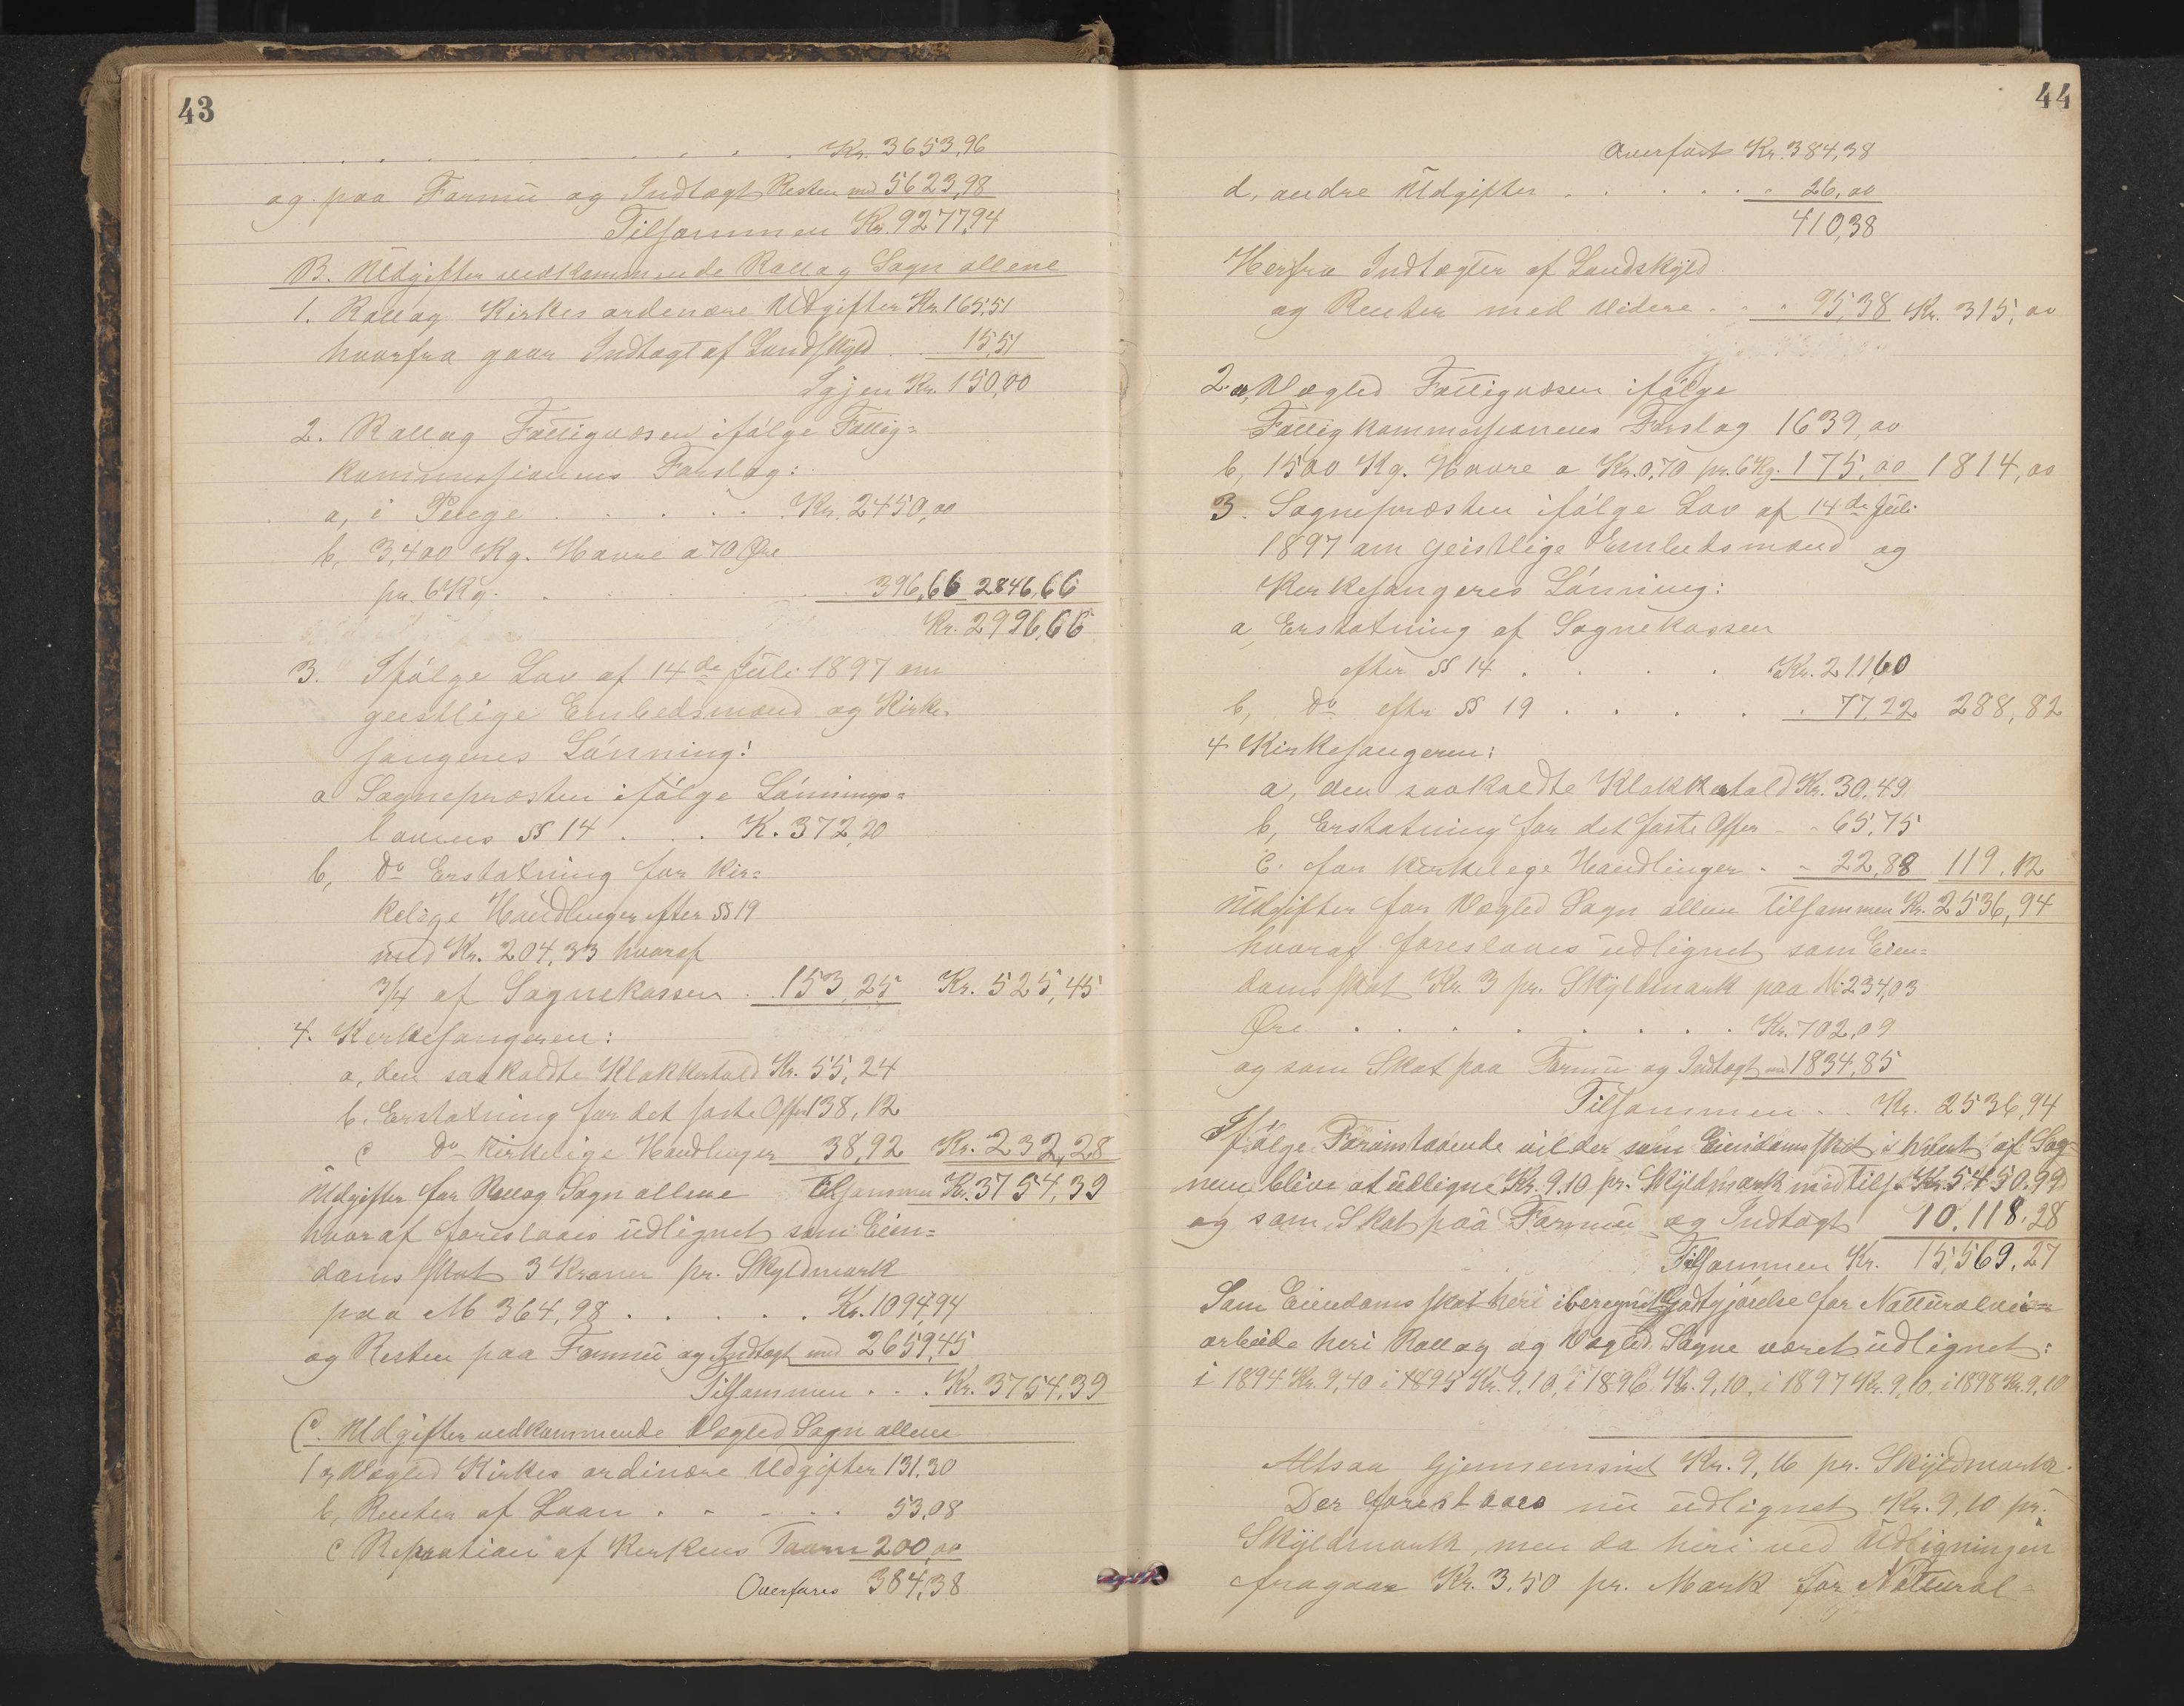 43
. . . . . . . . . . Kr. 3653,96
og paa Formu og Indtægt Resten med 5623,98
Tilsammen Kr. 9277,94
B. Udgifter vedkommende Rollag Sogn allene
1. Rollag Kirkes ordenære Udgifter Kr. 165,51
hvorfra gaar Indtægt af Landskyld . . 15,51
Igjen Kr. 150,00
2. Rollag Fattigvæsen ifølge Fattig=
kommissionens Forslag:
a, i Penge . . . . . Kr. 2450,00
b, 3,400 Kg. Havre a 70 Øre
pr. 6 Kg. . . . . . 396,66 2846,66
Kr. 2996,66
3. Ifølge Lov af 14de Juli 1897 om
geistlige Embedsmænd og Kirke-
sangeres Lønning:
a Sognepræsten ifølge Lønnings=
lovens §§ 14 . . . K. 372,20
b, Do Erstatning for kir=
kelige Handlinger efter §§ 19
med Kr. 204,33 hvoraf
3/4 af Sognekassen . 153,25 Kr. 525,45
4. Kirkesangeren:
a, den saakaldte Klokkertold Kr. 55,24
b. Erstatning for det faste Offer 138,12
c Do Kirkelige Handlinger 38,92 Kr. 232,28
Udgifter for Rollag Sogn allene Tilsammen Kr. 3754,39
hvoraf foreslaaes udlignet som Eien=
doms skat 3 Kroner pr. Skyldmark
paa M 364,98 . . . . . Kr. 1094,94
og Resten paa Formu og Indtægt med 2659,45
Tilsammen . . . Kr. 3754,39
C. Udgifter vedkommende Vegled Sogn allene
1 a, Vegled Kirkes ordinære Udgifter 131,30
b, Renter af Laan . . . . . 53,08
c Repration af Kirkens Taarn 200,00
Overføres 384,38
44
Overført Kr. 384,38
d, andre Udgifter . . . . . . 26,00
410,38
Herfra Indtægter af Landskyld
og Renter med videre . . . 95,38 Kr. 315,00
2. a, Vegled Fattigvæsen ifølge
Fattigkommissionens Forslag 1639,00
b, 1500 Kg. Havre a Kr. 0,70 pr. 6 Kg. 175,00 1814,00
3. Sognepræsten ifølge Lov af 14de Juli
1897 om geistlige Embedsmænd og
Kirkesangeres Lønning:
a, Erstatning af Sognekassen
efter §§ 14 . . . . Kr. 211,60
b, Do efter §§ 19 . . . . . 77,22 288,82
4 Kirkesangeren:
a, den saakaldte Klokkertold Kr. 30.49
b, Erstatning for det faste Offer - - 65,75
c. for kirkelege Handlinger . - 22,88 119.12
Udgifter for Vegled Sogn allene tilsammen Kr. 2536,94
hvoraf foreslaaes udlignet som Eien=
doms skat Kr. 3 pr. Skyldmark paa M. 234,03
Øre . . . . . . . . Kr. 702,09
og som Skat paa Formu og Indtægt med 1834,85
Tilsammen . . Kr. 2536,94
Ifølge Foranstaaende vil der som Eiendomsskat i hvert af Sog-
nene blive at udligne Kr. 9.10 pr. Skyldmark med tils. Kr. 5450.99
og som Skat paa Formu og Indtægt 10.118.28
Tilsammen Kr. 15,569,27
Som Eiendoms skat heri iberegnet Godtgjørelse for Natturalvei=
arbeide heri Rollag og Vegled Sogne været udlignet:
i 1894 Kr. 9,40 i 1895 Kr. 9,10, i 1896 Kr. 9,10, i 1897 Kr. 9,10, i 1898 Kr. 9,10
Altsaa Gjennemsnit Kr. 9,16 pr. Skyldmark.
Der foreslaaes nu udlignet Kr. 9,10 pr.
Skyldmark, men da heri ved Udligningen
fragaar Kr. 3,50 pr. Mark for Natural=